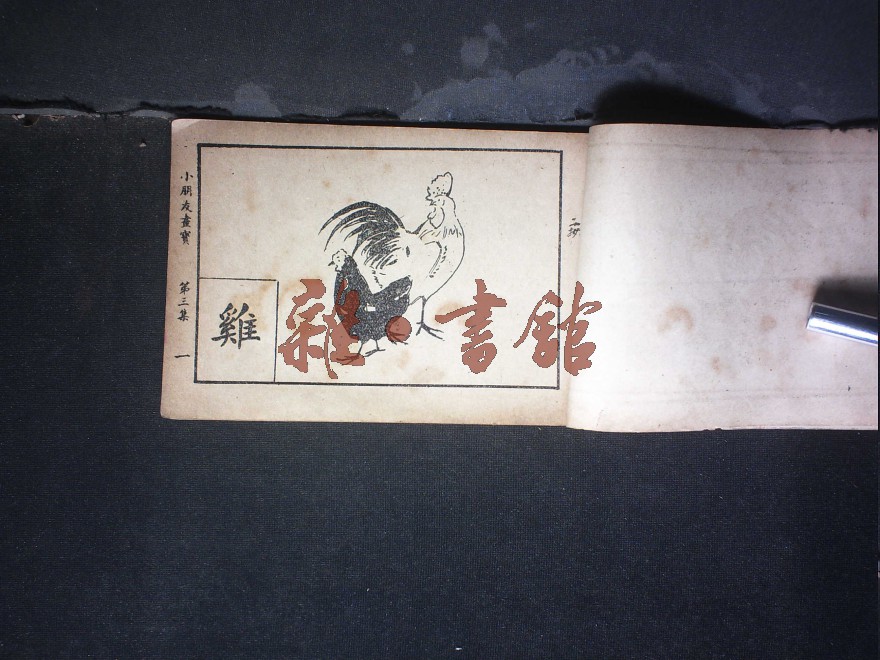 小朋友畫寶 第三集 一
雞
雜·書館